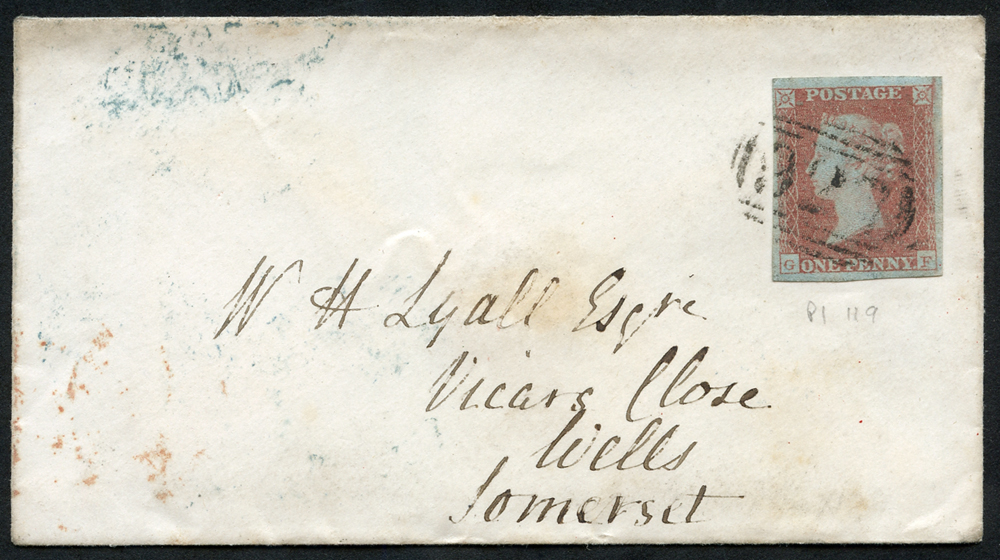 POSTAGE
G ONE PENNY F
P1 119
W H Lyall Esqre
Vicars Close
Wells
Somerset